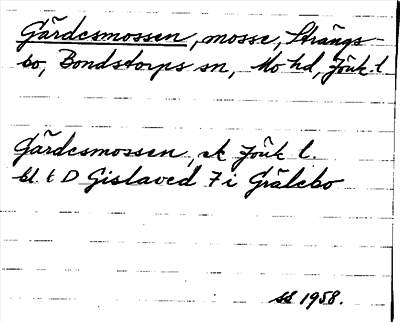 Gärdesmossen, mosse, Strängs-
bo, Bondstorps sn, Mo hd, Jönk. l.
Gärdesmossen, ek Jönk l.
bl. 6 D Gislaved 7 i Grälebo
SS 1958.